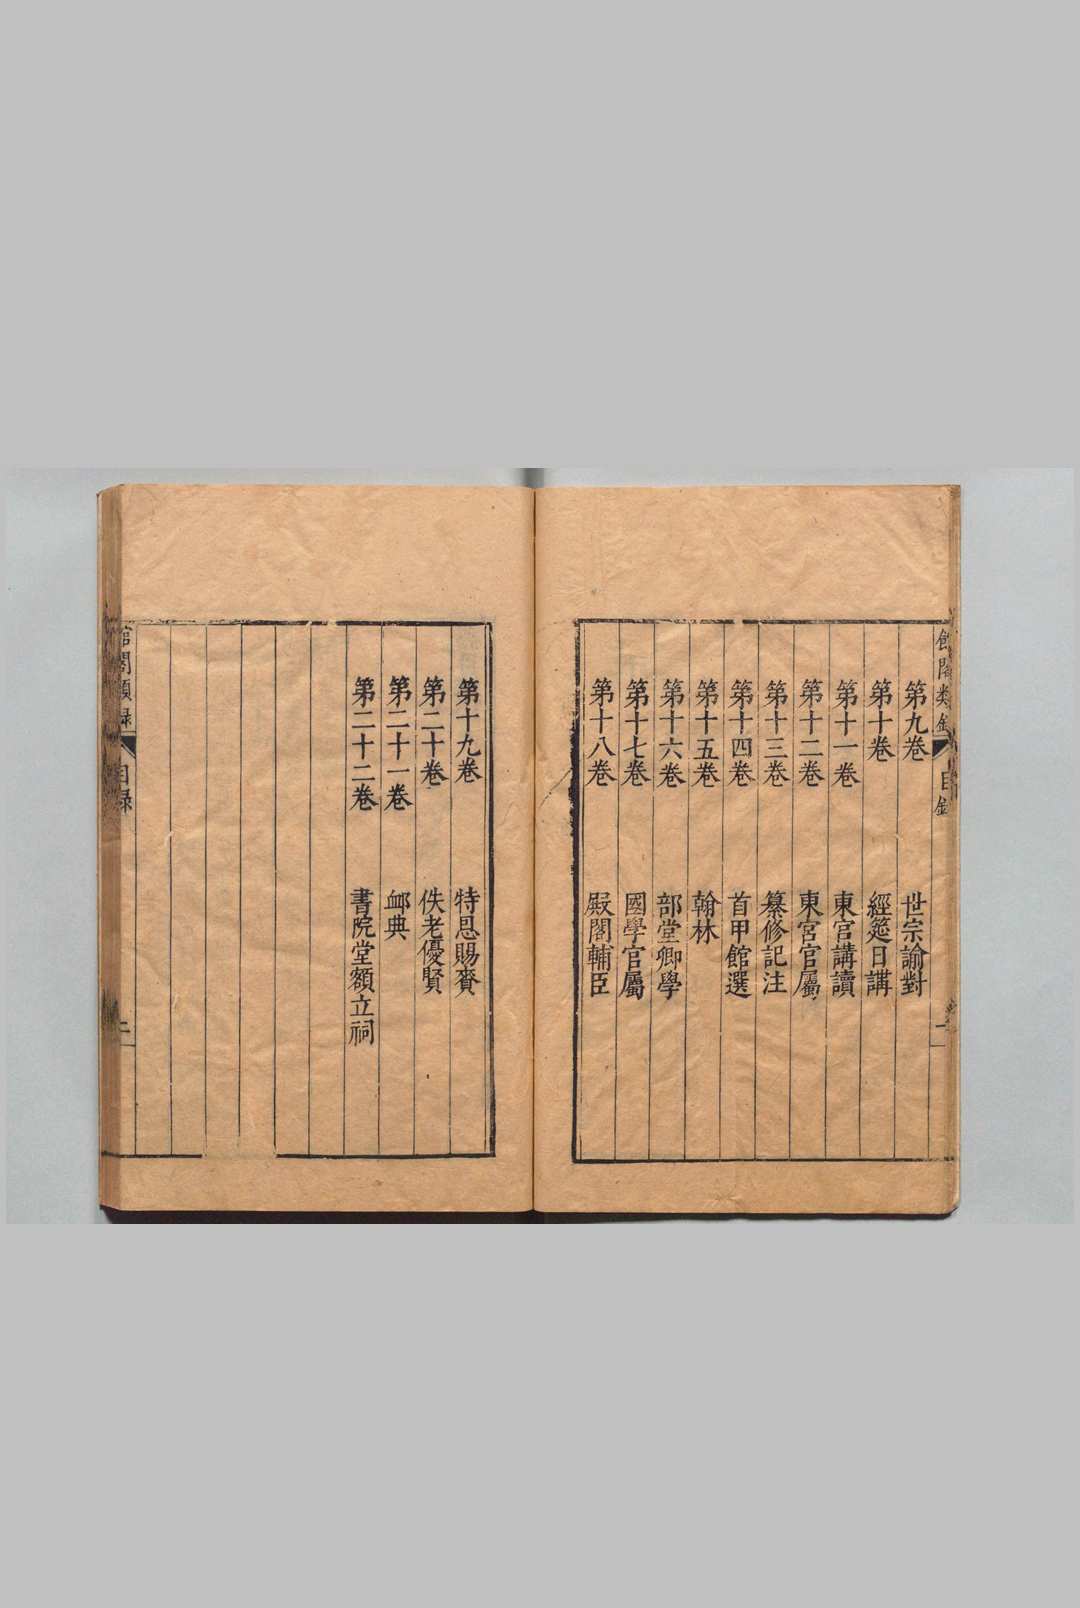 館閣類錄 目錄 一
第九卷 世宗諭對
第十卷 經筵日講
第十一卷 東宮講讀
第十二卷 東宮官屬
第十三卷 纂修記注
第十四卷 首甲館選
第十五卷 翰林
第十六卷 部堂卿學
第十七卷 國學官屬
第十八卷 殿閣輔臣
第十九卷 特恩賜賚
第二十卷 佚老優賢
第二十一卷 䘏典
第二十二卷 書院堂額立祠
館閣類録 目録 二